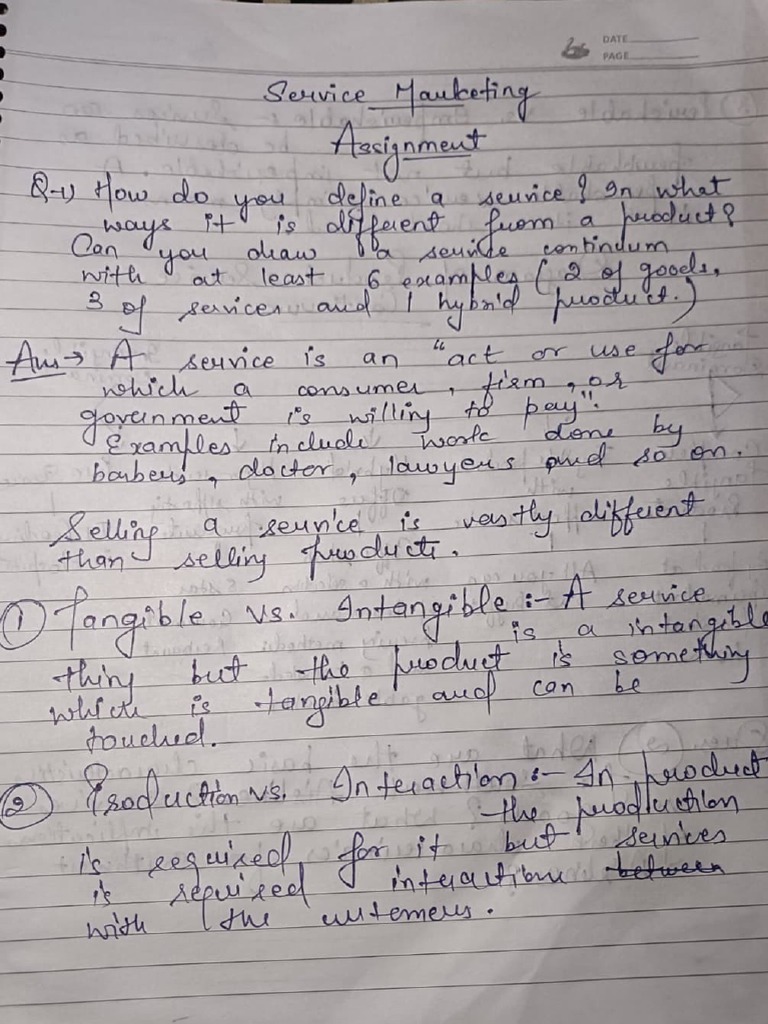 DATE
PAGE
Service Marketing
Assignment
Q-1) How do you define a service? In what
ways it is different from a product?
Can you draw a service contindum
with at least 6 examples ( 2 of goods,
3 of services and 1 hybrid product.)
Ans → A service is an "act or use for
which a consumer, firm, or
government is willing to pay".
Examples include work done by
barbers, doctor, lawyers and so on.
Selling a service is vastly different
than selling products.
① Tangible vs. Intangible :- A service
is a intangible
thing but the product is something
which is tangible and can be
touched.
② Production vs. Interaction :- In product
the production
is required for it but services
is required interaction between
with the customers.